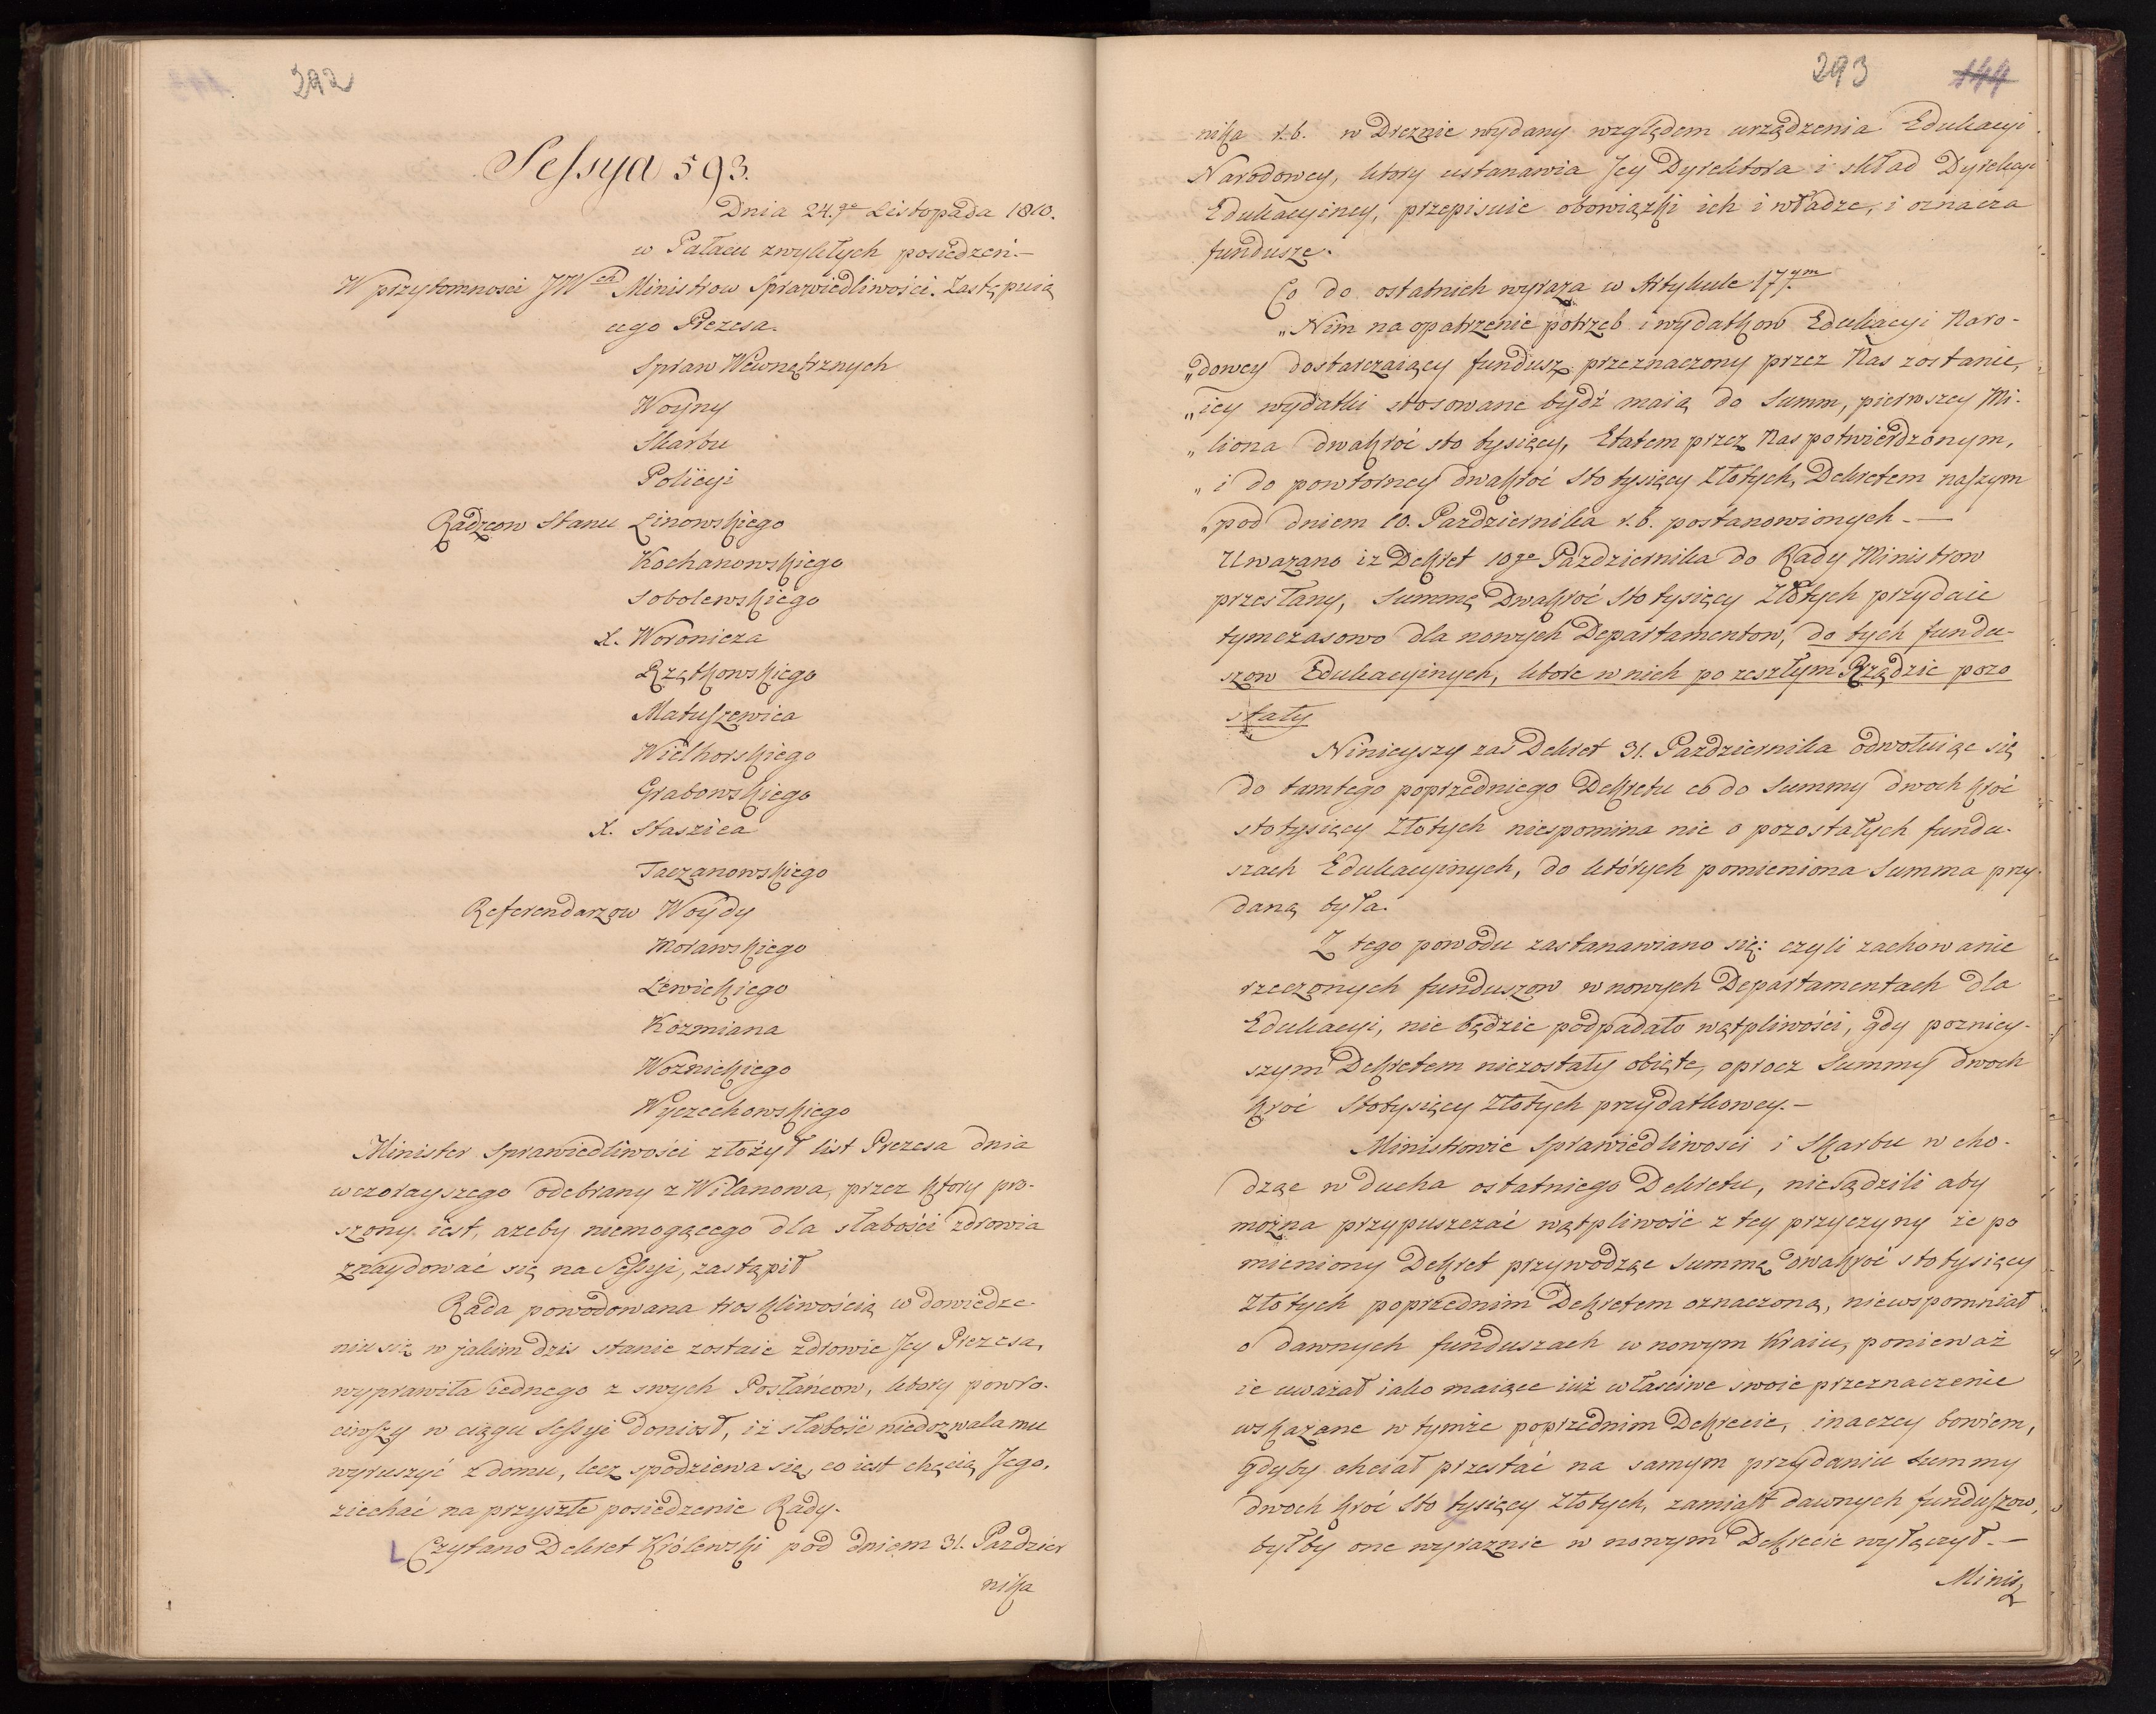 292
Sessya 593.
Dnia 24.go Listopada 1810.
w Pałacu zwykłych posiedzeń.—
W przytomności JWch Ministrow Sprawiedliwości. Zastępuią
cego Prezesa.
Spraw Wewnętrznych
Woyny
Skarbu
Policyi
Radzcow Stanu Linowskiego
Kochanowskiego
Sobolewskiego
X. Woronicza
Rzętkowskiego
Matuszewica
Wielhorskiego
Grabowskiego
X. Staszica
Taczanowskiego
Referendarzow Woydy
Morawskiego
Lewickiego
Kozmiana
Woznickiego
Wyczechowskiego
Minister Sprawiedliwości złożył list Prezesa dnia
wczorayszego odebrany z Wilanowa, przez ktory pro-
szony iest, azeby niemogącego dla słabości zdrowia
znaydować się na Sessyi, zastąpił
Rada powodowana troskliwością w dowiedze-
niu się w jakim dzis stanie zostaie zdrowie Jey Prezesa,
wyprawiła iednego z swych Posłańcow, ktory powro-
ciwszy w ciągu Sessyi doniosł, iż słabość niedozwala mu
wyruszyć z domu, lecz spodziewa się, co iest chęcią Jego,
ziechać na przyszłe posiedzenie Rady.
Czytano Dekret Królewski pod dniem 31. Pazdzier
nika
293 144
nika r.b. w Dreznie wydany względem urządzenia Edukacyi
Narodowey, ktory ustanawia Jey Dyrektora i skład Dyrekcyi
Edukacyiney, przepisuie obowiązki ich i władze, i oznacza
fundusze.
Co do ostatnich wyraza w Artykule 177.m
„Nim na opatrzenie potrzeb i wydatkow Edukacyi Naro-
„dowey dostarczaiący fundusz przeznaczony przez Nas zostanie,
„iey wydatki stosowane bydź maią do Summ, pierwszey Mi-
„liona dwakroć sto tysięcy, Etatem przez Nas potwierdzonym,
„i do powtorney dwakroć sto tysięcy Złotych, Dekretem naszym
„pod dniem 10. Pazdziernika r.b. postanowionych.—
Uwazano iz Dekret 10go Pazdziernika do Rady Ministrow
przesłany, Summę Dwakroć Sto tysięcy Złotych przydaie
tymczasowo dla nowych Departamentow, do tych fundu-
szow Edukacyinych, ktore w nich po zeszłym Rządzie pozo
stały
Ninieyszy zas Dekret 31. Pazdziernika odwołuiąc się
do tamtego poprzedniego Dekretu co do Summy dwoch kroć
stotysięcy Złotych niespomina nic o pozostałych fundu-
szach Edukacyinych, do których pomieniona Summa przy-
daną była.
Z tego powodu zastanawiano się: czyli zachowanie
rzeczonych funduszow w nowych Departamentach dla
Edukacyi, nie będzie podpadało wątpliwości, gdy pozniey-
szym Dekretem niezostały obięte, oprocz Summy dwoch
kroć Stotysięcy Złotych przydatkowey.—
Ministrowie Sprawiedliwosci i Skarbu w cho-
dząc w ducha ostatniego Dekretu, niesądzili aby
można przypuszczać wątpliwość z tey przyczyny że po
mieniony Dekret przywodząc Summę dwakroć stotysięcy
Złotych poprzednim Dekretem oznaczoną, niewspomniał
o dawnych funduszach w nowym Kraiu, ponieważ
ie uważał iako maiące iuż właściwe swoie przeznaczenie
wskazane w tymże poprzednim Dekrecie, inaczey bowiem,
gdyby chciał przestać na samym przydaniu Summy
dwoch kroć Sto tysięcy Złotych, zamiast dawnych funduszow,
byłby one wyraznie w nowym Dekrecie wyłączył.—
Minis